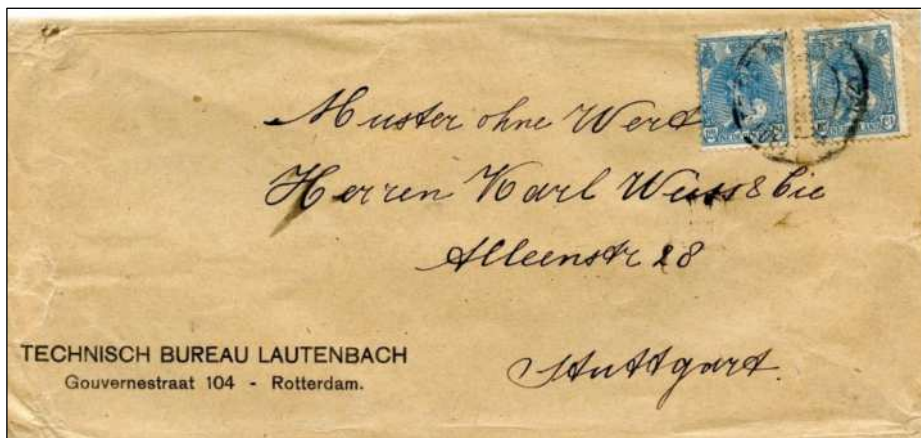 Muster ohne Wert
Herren Karl Weiss & Cie
Alleenstr 28
Stuttgart.
TECHNISCH BUREAU LAUTENBACH
Gouvernestraat 104 - Rotterdam.